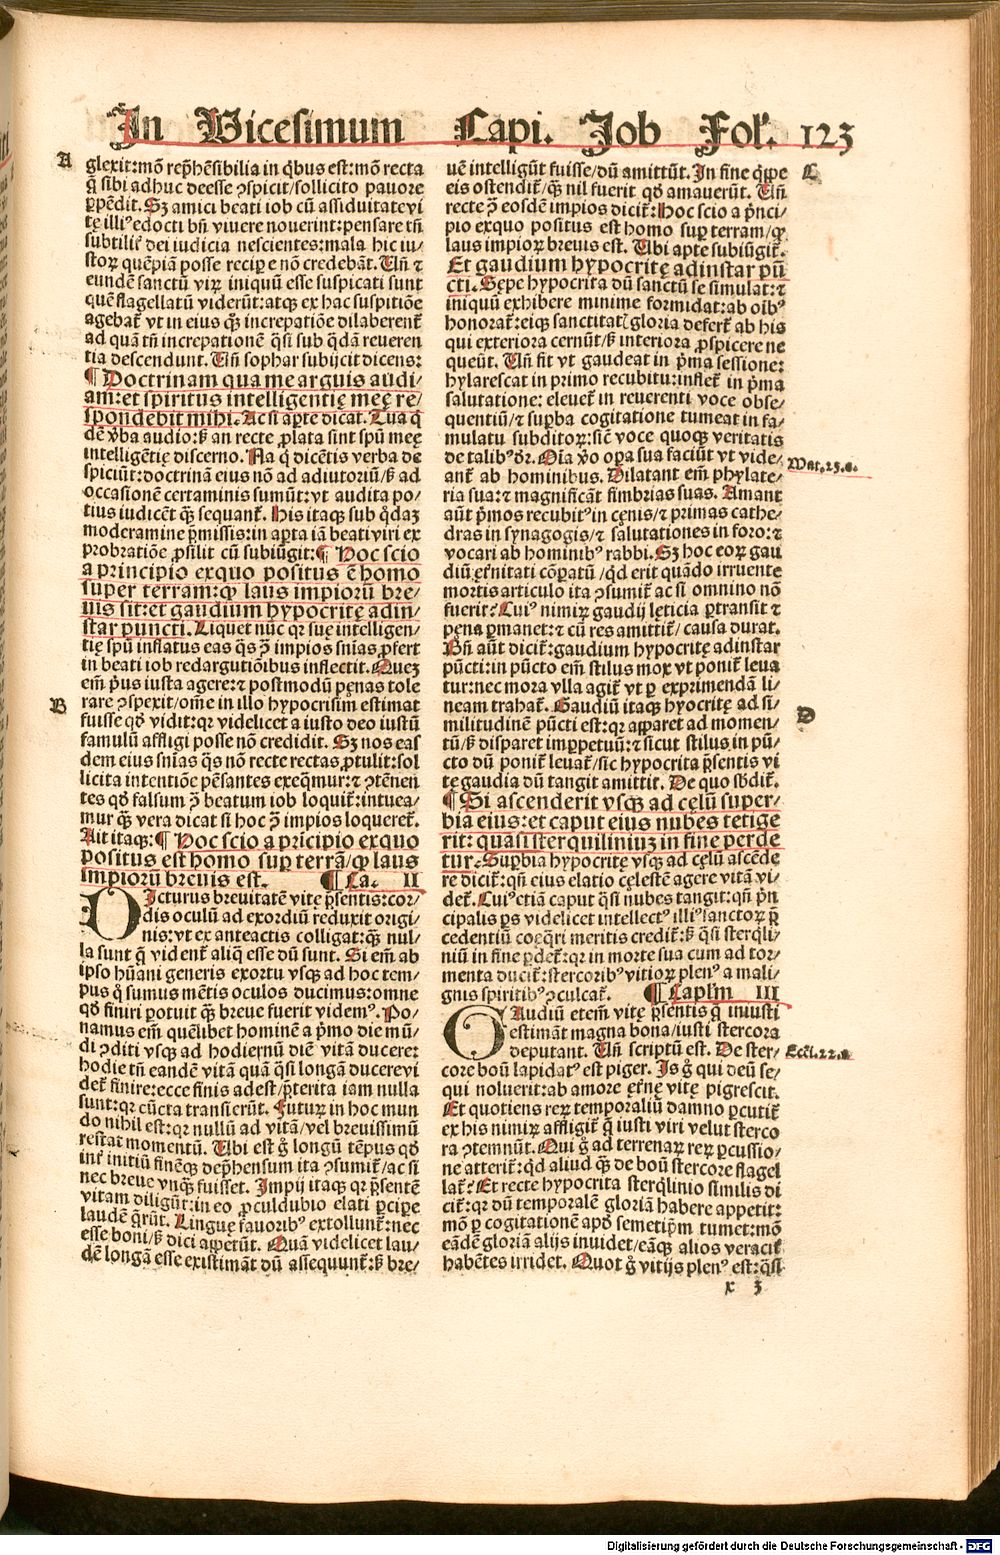 In Vicesimum Capi. Job Fol. 123
A
glexit: mō rep̄hēsibilia in q̇bus est: mō recta
q̄ sibi adhuc deesse ꝯspicit/sollicito pauore
ꝑpēdit. Sꝫ amici beati iob cū assiduitate vi
tę illiꝰ edocti bn̄ viuere nouerint: pensare tn̄
subtiliṫ dei iudicia nescientes: mala hic iu/
stoꝝ quēpiā posse reciꝑe nō credebāt. Un̄ ⁊
eundē sanctū viꝝ iniquū esse suspicati sunt
quē flagellatū viderūt: atqꝫ ex hac suspitiōe
agebat᷑ vt in eius qꝫ increpatiōe dilaberent᷑
ad quā tn̄ increpationē q̄si sub q̇dā reueren
tia descendunt. Un̄ sophar subijcit dicens:
¶ Doctrinam qua me arguis audi/
am: et spiritus intelligentię meę re/
spondebit mihi. Ac si aꝑte dicat. Tua q̇
dē v̄ba audio: sꝫ an recte ꝓlata sint spū meę
intelligētię discerno. Nā q̇ dicētis verba de
spiciūt: doctrinā eius nō ad adiutoriū/sꝫ ad
occasionē certaminis sumūt: vt audita po/
tius iudicēt qꝫ sequant᷑. His itaqꝫ sub q̇daꝫ
moderamine p̄missis: in aꝑta iā beati viri ex
probratiōe ꝓsilit cū subiūgit: ¶ Hoc scio
a principio exquo positus ē homo
super terram: ꝙ laus impiorū bre/
uis sit: et gaudium hypocritę adin/
star puncti. Liquet nūc qꝛ suę intelligen/
tię spū inflatus eas q̄s ꝯ̄ impios snīas ꝓfert
in beati iob redargutiōibus inflectit. Queꝫ
em̄ pͥus iusta agere: ⁊ postmodū pęnas tole
B
rare ꝯspexit/om̄e in illo hypocrisim estimat
fuisse qd̄ vidit: qꝛ videlicet a iusto deo iustū
famulū affligi posse nō credidit. Sꝫ nos eas
dem eius snīas q̄s nō recte rectas ꝓtulit: sol
licita intentiōe pēsantes exeq̄mur: ⁊ ꝯtēnen
tes qd̄ falsum ꝯ̄ beatum iob loquit᷑: intuea/
mur qꝫ vera dicat si hoc ꝯ̄ impios loqueret᷑.
Ait itaqꝫ: ¶ Hoc scio a prīcipio exquo
positus est homo suꝑ terrā/ꝙ laus
impiorū breuis est. ¶ Ca. II
DIcturus breuitatē vitę p̄sentis: cor/
dis oculū ad exordiū reduxit origi/
nis: vt ex anteactis colligat: qꝫ nul/
la sunt q̄ vident᷑ aliq̄ esse dū sunt. Si em̄ ab
ipso hūani generis exortu vsqꝫ ad hoc tem/
pus q̇ sumus mētis oculos ducimus: omne
qd̄ finiri potuit qꝫ breue fuerit videmꝰ. Po/
namus em̄ quēlibet hominē a pͥmo die mū/
di ꝯditi vsqꝫ ad hodiernū diē vitā ducere:
hodie tn̄ eandē vitā quā q̄si longā ducere vi
det᷑ finire: ecce finis adest/p̄terita iam nulla
sunt: qꝛ cūcta transierūt. Futuꝝ in hoc mun
do nihil est: qꝛ nullū ad vitā/vel breuissimū
restat momentū. Ubi est g̊ longū tēpus qd̄
int᷑ initiū finēqꝫ dep̄hensum ita ꝯsumit᷑/ac si
nec breue vnqꝫ fuisset. Impij itaqꝫ qꝛ p̄sentē
vitam diligūt: in eo ꝓculdubio elati ꝑciꝑe
laudē q̄rūt. Linguę fauoribꝰ extollunt᷑: nec
esse boni/sꝫ dici apꝑetūt. Quā videlicet lau/
dē longā esse existimāt dū assequunt᷑: sꝫ bre/
C
uē intelligūt fuisse/dū amittūt. In fine q̇ppe
eis ostendit᷑/qꝫ nil fuerit qd̄ amauerūt. Un̄
recte ꝯ̄ eosdē impios dicit᷑: Hoc scio a pͥnci/
pio exquo positus est homo suꝑ terram/ꝙ
laus impioꝝ breuis est. Ubi apte subiūgit᷑.
Et gaudium hypocritę adinstar pū
cti. Sępe hypocrita dū sanctū se simulat: ⁊
iniquū exhibere minime formidat: ab oībꝰ
honorat᷑: eiqꝫ sanctitatꝭ gloria defert᷑ ab his
qui exteriora cernūt/sꝫ interiora ꝓspicere ne
queūt. Un̄ fit vt gaudeat in pͥma sessione:
hylarescat in primo recubitu: inflet᷑ in pͥma
salutatione: eleuet᷑ in reuerenti voce obse/
quentiū/⁊ suꝑba cogitatione tumeat in fa/
mulatu subditoꝝ: sic̄ voce quoqꝫ veritatis
de talibꝰ dr̄. Oīa v̊o oꝑa sua faciūt vt vide/
Mat. 23. a.
ant᷑ ab hominibus. Dilatant em̄ phylate/
ria sua: ⁊ magnificāt fimbrias suas. Amant
aūt pͥmos recubitꝰ in cęnis/⁊ primas cathe/
dras in synagogis/⁊ salutationes in foro: ⁊
vocari ab hominibꝰ rabbi. Sꝫ hoc eoꝝ gau
diū et̄nitati cōꝑatū/qd̄ erit quādo irruente
mortis articulo ita ꝯsumit᷑ ac si omnino nō
fuerit? Cuiꝰ nimiꝝ gaudij lęticia ꝑtransit ⁊
pęna ꝑmanet: ⁊ cū res amittit᷑/causa durat.
Bn̄ aūt dicit᷑: gaudium hypocritę adinstar
pūcti: in pūcto em̄ stilus mox vt ponit᷑ leua
tur: nec mora vlla agit᷑ vt ꝑ exprimendā li/
neam trahat᷑. Gaudiū itaqꝫ hyocritę ad si/
D
militudinē pūcti est: qꝛ apꝑaret ad momen/
tū/sꝫ disparet imꝑpetuū: ⁊ sicut stilus in pū/
cto dū ponit᷑ leuat᷑/sic hypocrita p̄sentis vi
tę gaudia dū tangit amittit. De quo sb̄dit᷑.
¶ Si ascenderit vsqꝫ ad cęlū super/
bia eius: et caput eius nubes tetige
rit: quasi sterquiliniuꝫ in fine perde
tur. Suꝑbia hypocritę vsqꝫ ad cęlū ascēde
re dicit᷑: qn̄ eius elatio cęlestē agere vitā vi/
det᷑. Cuiꝰ etiā caput q̄si nubes tangit: qn̄ pͥn
cipalis ps videlicet intellectꝰ illiꝰ sanctoꝝ p̄
cedentiū coęq̄ri meritis credit᷑: sꝫ q̄si sterq̇li/
niū in fine ꝑdet᷑: qꝛ in morte sua cum ad tor/
menta ducit᷑: stercoribꝰ vitioꝝ plenꝰ a mali/
gnis spiritibꝰ ꝯculcat᷑. ¶ Capl̄m III
GAudiū etem̄ vitę p̄sentis q̄ iniusti
estimāt magna bona/iusti stercora
deputant. Un̄ scriptū est. De ster/
Eccl. 22. a
core boū lapidatꝰ est piger. Is g̊ qui deū se/
qui noluerit: ab amore ęt̄nę vitę pigrescit.
Et quotiens reꝝ temporaliū damno ꝑcutit᷑
ex his nimiꝝ affligit᷑ q̄ iusti viri velut sterco
ra ꝯtemnūt. Qui g̊ ad terrenaꝝ reꝝ ꝑcussio/
ne atterit᷑: qd̄ aliud qꝫ de boū stercore flagel
lat᷑? Et recte hypocrita sterq̇linio similis di
cit᷑: qꝛ dū temporalē gloriā habere appetit:
mō ꝑ cogitationē apd̄ semetip̄m tumet: mō
eādē gloriā alijs inuidet/eāqꝫ alios veracit᷑
habētes irridet. Quot g̊ vitijs plenꝰ est: q̄si
x 3
Digitalisierung gefördert durch die Deutsche Forschungsgemeinschaft - DFG